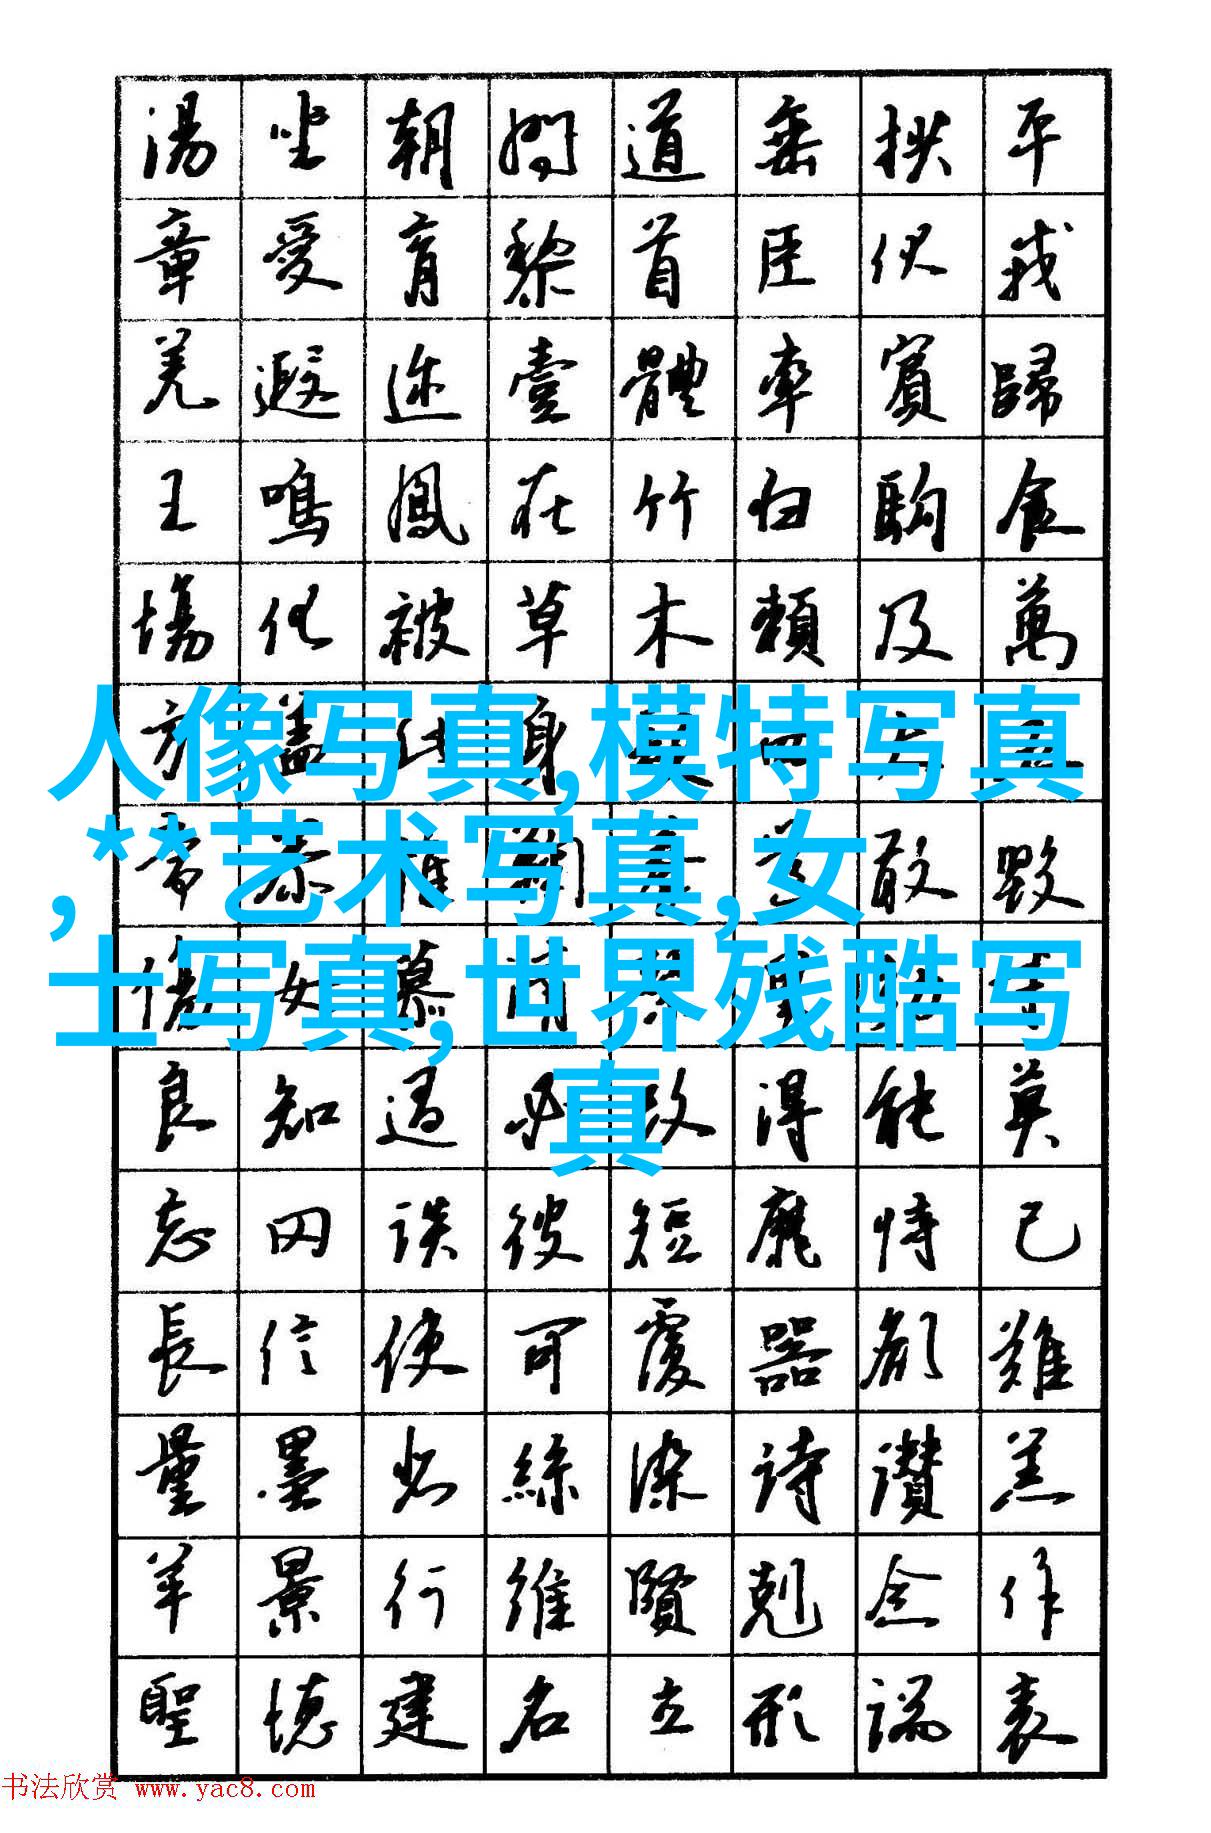 湯坐朝問道垂拱平
章愛育黎首臣伏戎
羌遐迩壹體率賓歸
王鳴鳳在竹白駒食
場化被草木賴及萬
方蓋此身
人像写真,模特写真
常恭惟鞠養豈敢毀
,**艺术写真,女
傷女慕
士写真,世界残酷写
良知過必改得能莫
真
忘罔談彼短靡恃己
長信使可覆器欲難
量墨悲絲染詩讚羔
羊景行維賢剋念作
聖德建名立形端表
书法欣赏 www.yac8.com